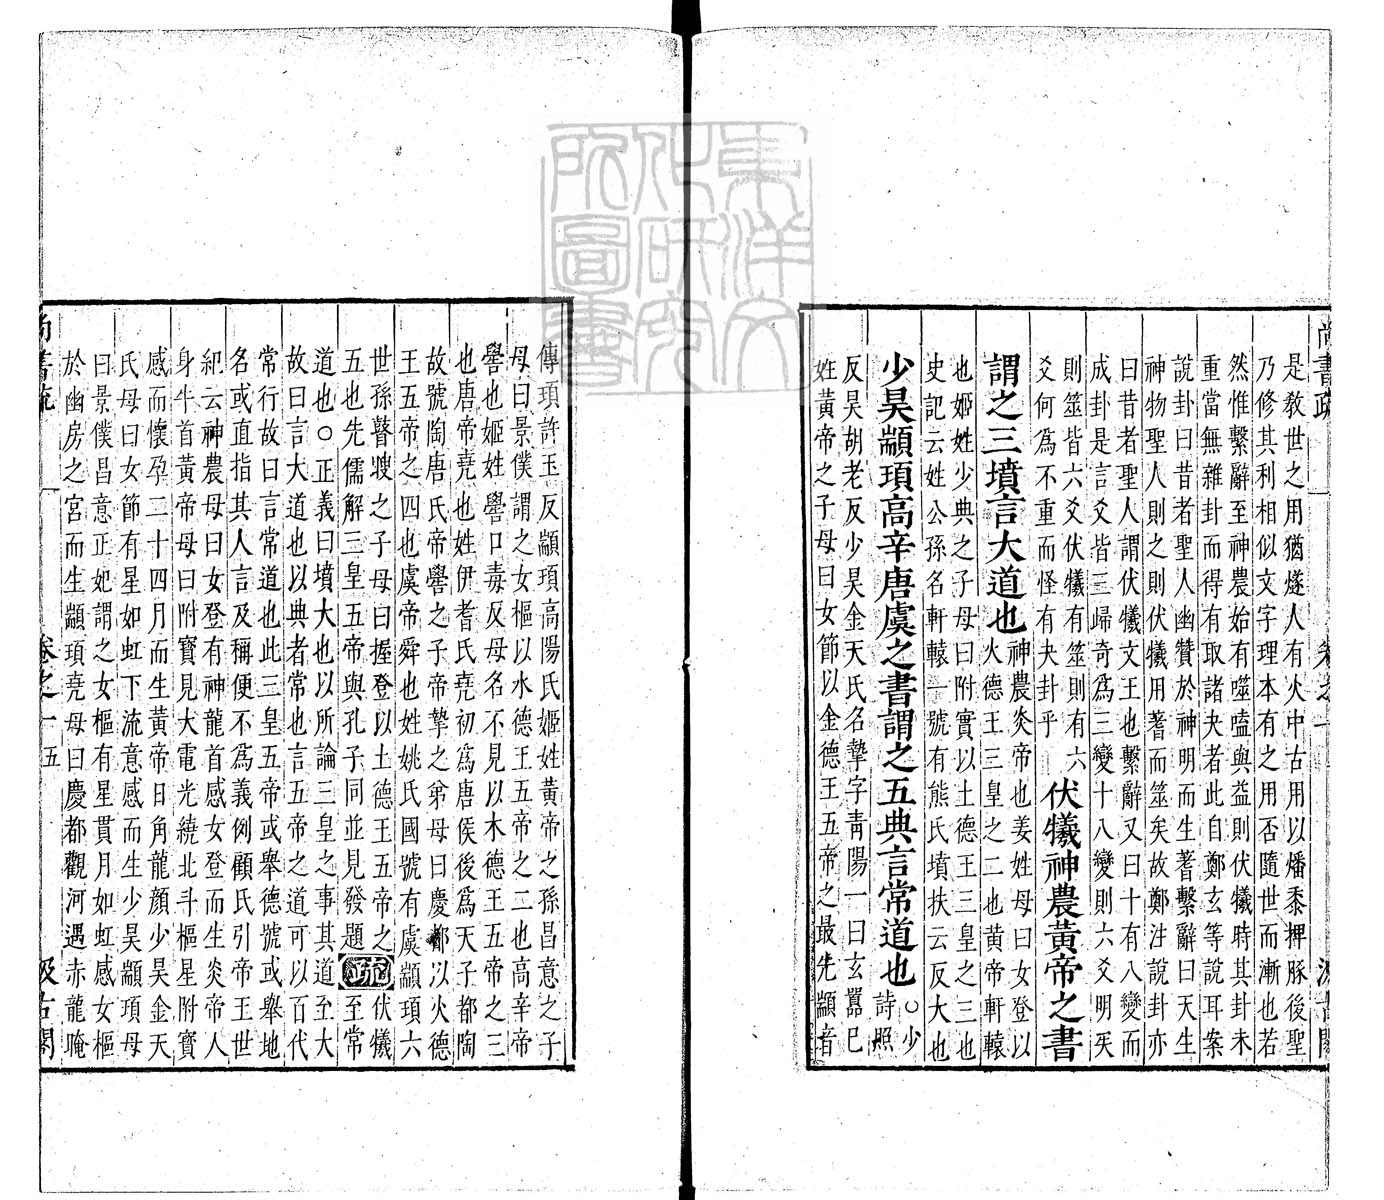 尚書疏 卷之一 汲古閣
是教世之用猶燧人有火中古用以燔黍捭豚後聖
乃修其利相似文字理本有之用否隨世而漸也若
然惟繫辭至神農始有噬嗑與益則伏犧時其卦未
重當無雜卦而得有取諸夬者此自鄭玄等說耳案
說卦曰昔者聖人幽贊於神明而生蓍繫辭曰天生
神物聖人則之則伏犧用蓍而筮矣故鄭注說卦亦
曰昔者聖人謂伏犧文王也繫辭又曰十有八變而
成卦是言爻皆三歸奇爲三變十八變則六爻明矣
則筮皆六爻伏犧有筮則有六
爻何爲不重而怪有夬卦乎
伏犧神農黃帝之書
謂之三墳言大道也
神農炎帝也姜姓母曰女登以
火德王三皇之二也黄帝軒轅
也姬姓少典之子母曰附寶以土德王三皇之三也
史記云姓公孫名軒轅一號有熊氏墳扶云反大也
少昊顓頊高辛唐虞之書謂之五典言常道也
○少
詩照
反昊胡老反少昊金天氏名摯字青陽一曰玄囂已
姓黃帝之子母曰女節以金德王五帝之最先顓音
傳頊許玉反顓頊高陽氏姬姓黃帝之孫昌意之子
母曰景僕謂之女樞以水德王五帝之二也高辛帝
嚳也姬姓嚳口毒反母名不見以木德王五帝之三
也唐帝堯也姓伊耆氏堯初爲唐侯後爲天子都陶
故號陶唐氏帝嚳之子帝摯之弟母曰慶都以火德
王五帝之四也虞帝舜也姓姚氏國號有虞顓頊六
世孫瞽瞍之子母曰握登以土德王五帝之
五也先儒解三皇五帝與孔子同並見發題
疏
伏犧
至常
道也○正義曰墳大也以所論三皇之事其道至大
故曰言大道也以典者常也言五帝之道可以百代
常行故曰言常道也此三皇五帝或舉德號或舉地
名或直指其人言及稱便不爲義例顧氏引帝王世
紀云神農母曰女登有神龍首感女登而生炎帝人
身牛首黃帝母曰附寶見大電光繞北斗樞星附寶
感而懷孕二十四月而生黃帝日角龍顏少昊金天
氏母曰女節有星如虹下流意感而生少昊顓頊母
曰景僕昌意正妃謂之女樞有星貫月如虹感女樞
於幽房之宮而生顓頊堯母曰慶都觀河遇赤龍晻
尚書疏 卷之一 五 汲古閣
東洋文化研究所圖書